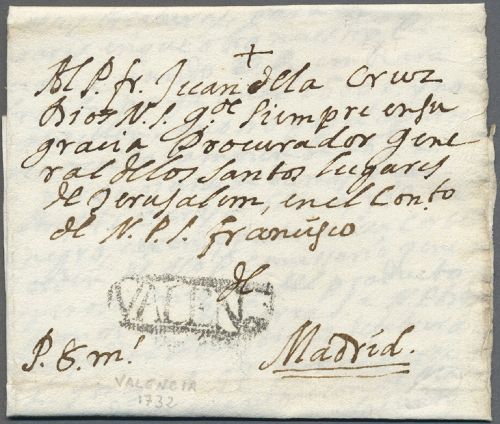 +
Al P. fr. Juan dela Cruz
Dios N. S. g.de Siempre ensu
gracia Procurador Gene
ral delos Santos Lugares
de Jerusalem, en el Conto
de N. P. S. francisco
de
VALENC
P. &. m.l
Madrid.
VALENCIA
1732